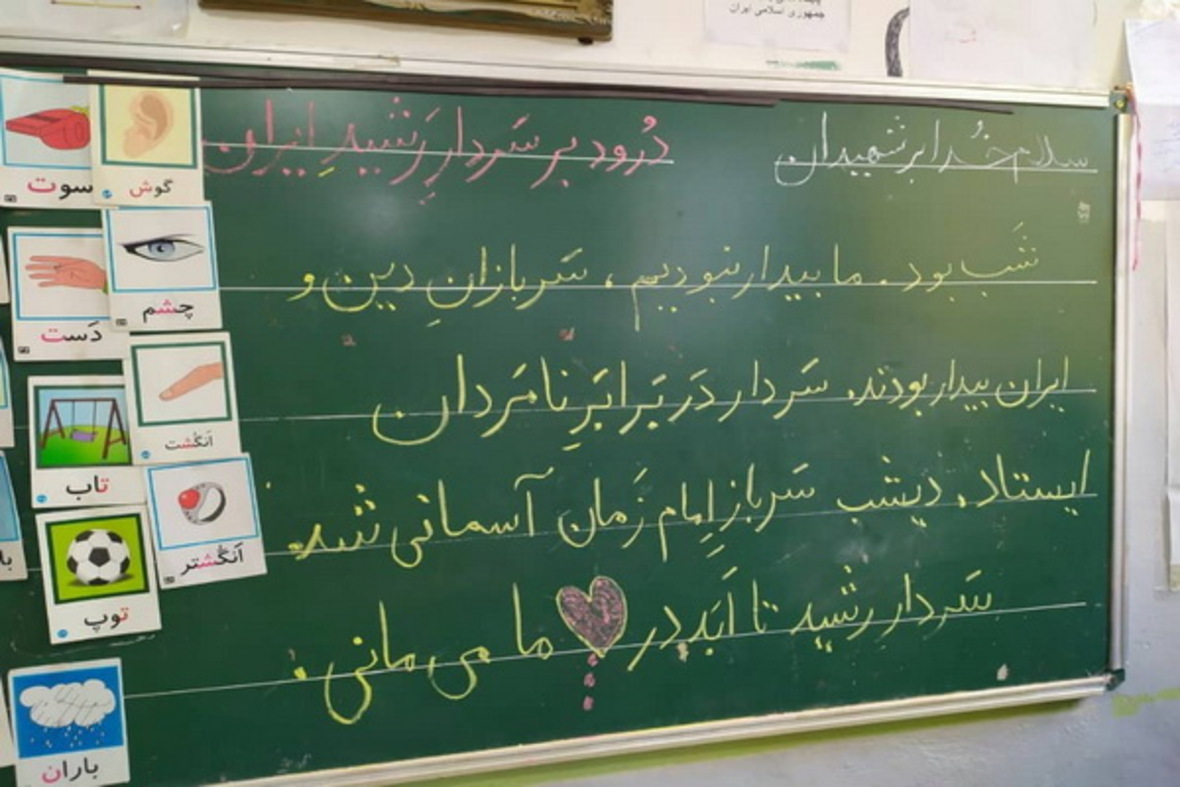 جمهوری اسلامی ایران
سلام خُدا بر شهیدان
دُرود بر سَردارِ رَشیدِ ایران
شَب بود. ما بیدار نبودیم، سَربازانِ دین و
ایران بیدار بودند. سَردار دَر بَرابَرِ نامَردان
ایستاد. دیشب سَربازِ اِمام زَمان آسمانی شد.
سَردارِ رشید تا اَبَد در ما می مانی.
سوت
گوش
دَست
چشم
تاب
اَنگُشت
توپ
اَنگُشتر
باران